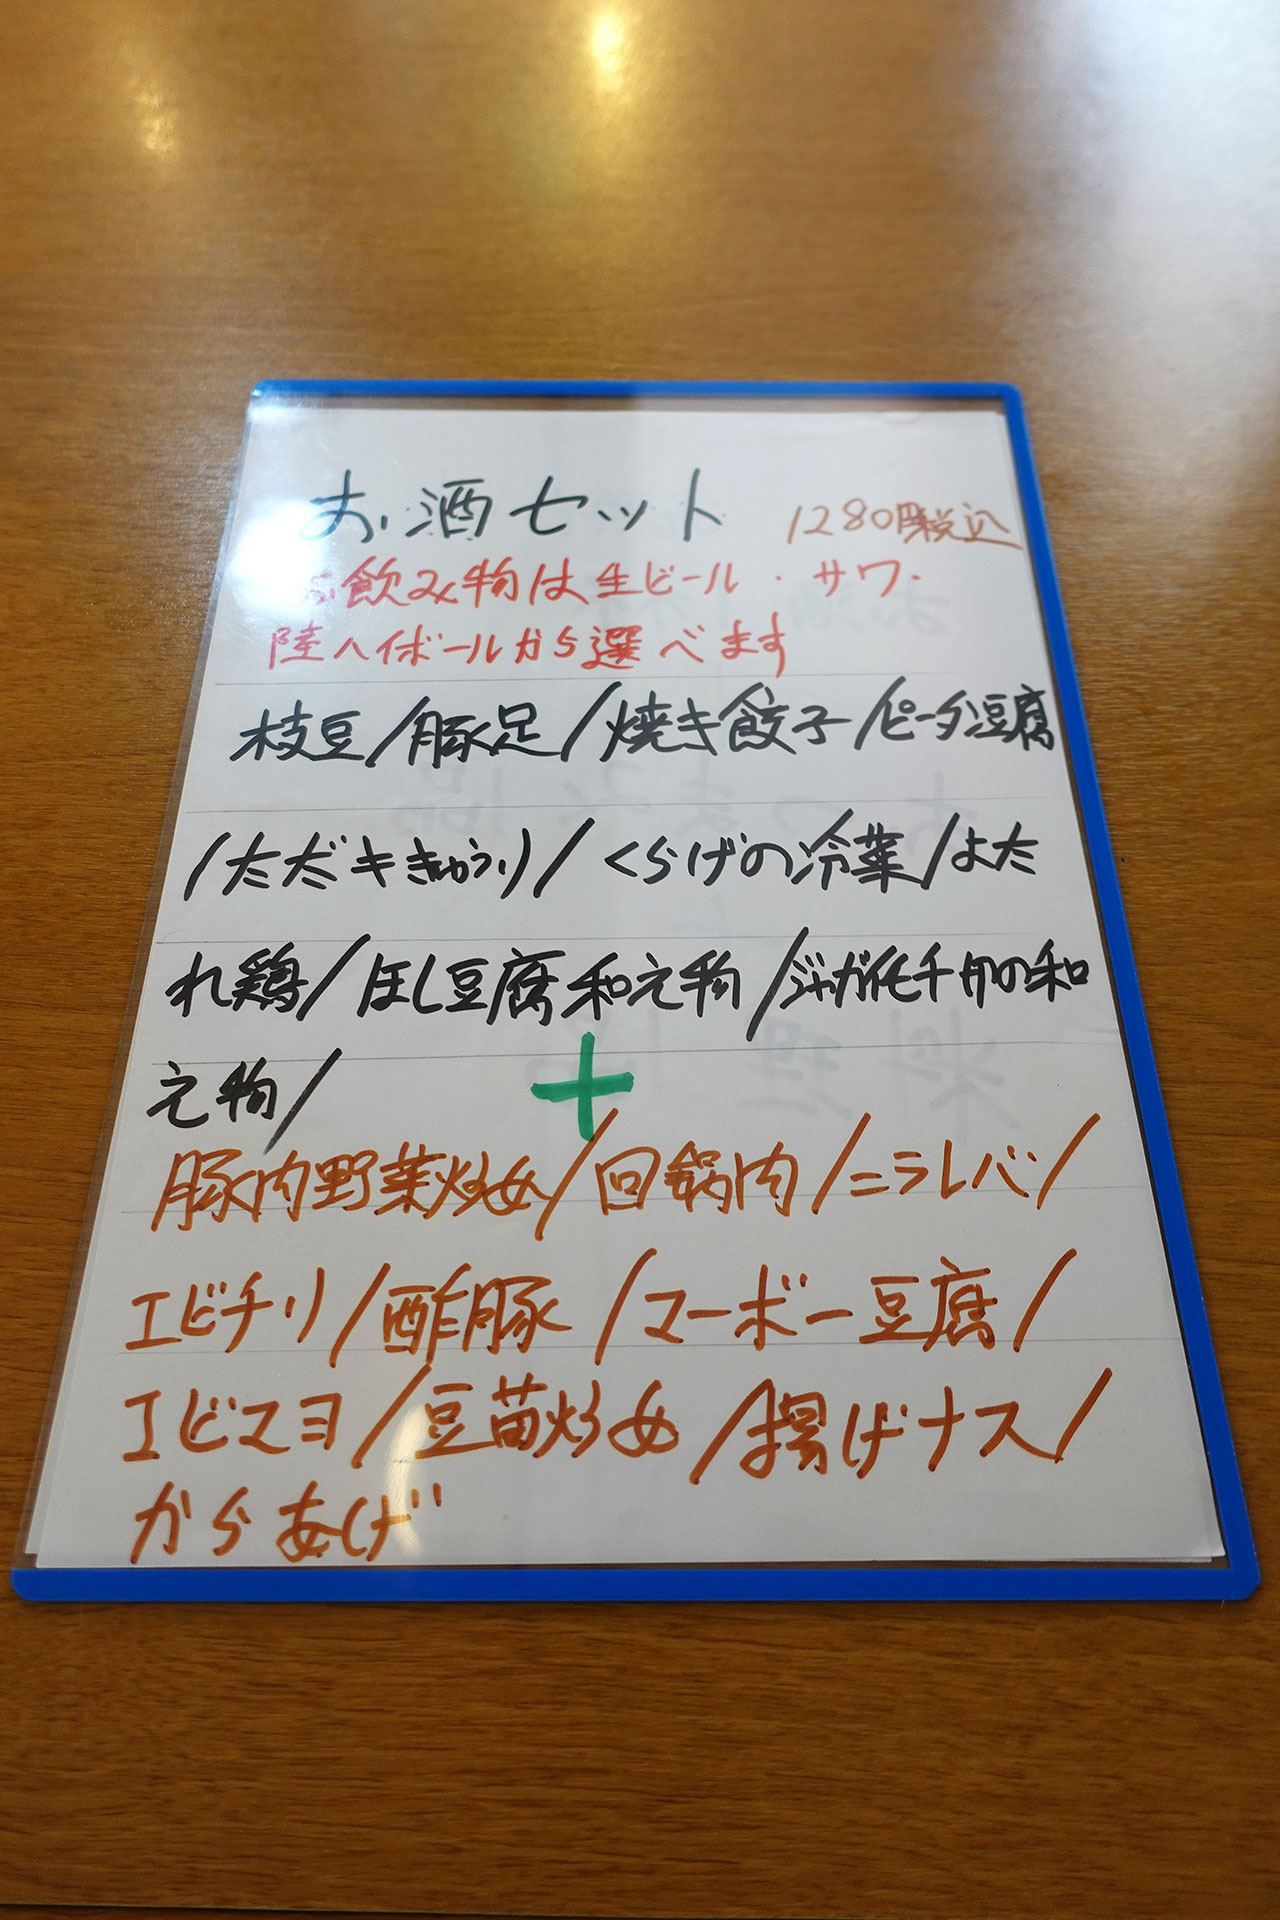 お酒セット 1280円税込
お飲み物は生ビール・サワ・
陸ハイボールから選べます
枝豆/豚足/焼き餃子/ピータン豆腐
/ただキきゅうり/くらげの冷菜/よだ
れ鶏/ほし豆腐和え物/
え物/
+
豚肉野菜炒め/回鍋肉/ニラレバ/
エビチリ/酢豚/マーボー豆腐/
エビマヨ/豆苗炒め/揚げナス/
からあげ